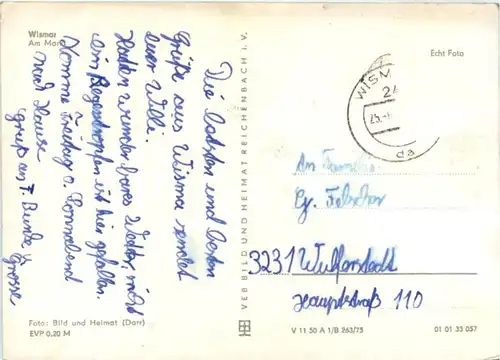 Wismar
Am Markt
Die letzten und besten
Grüße aus Wismar sendet
euer Willi.
Hatten wunderbares Wetter, nicht
ein Regentropfen ist hier gefallen.
Komme Freitag o. Sonnabend
nach Hause
Gruß an F. Bunde
Foto: Bild und Heimat (Darr)
EVP 0.20 M
VEB BILD UND HEIMAT REICHENBACH i. V.
Echt Foto
WISM
da
An Familie
3231 Wulferstedt
Hauptstraß 110
V 11 50 A 1/B 263/75
01 01 33 057